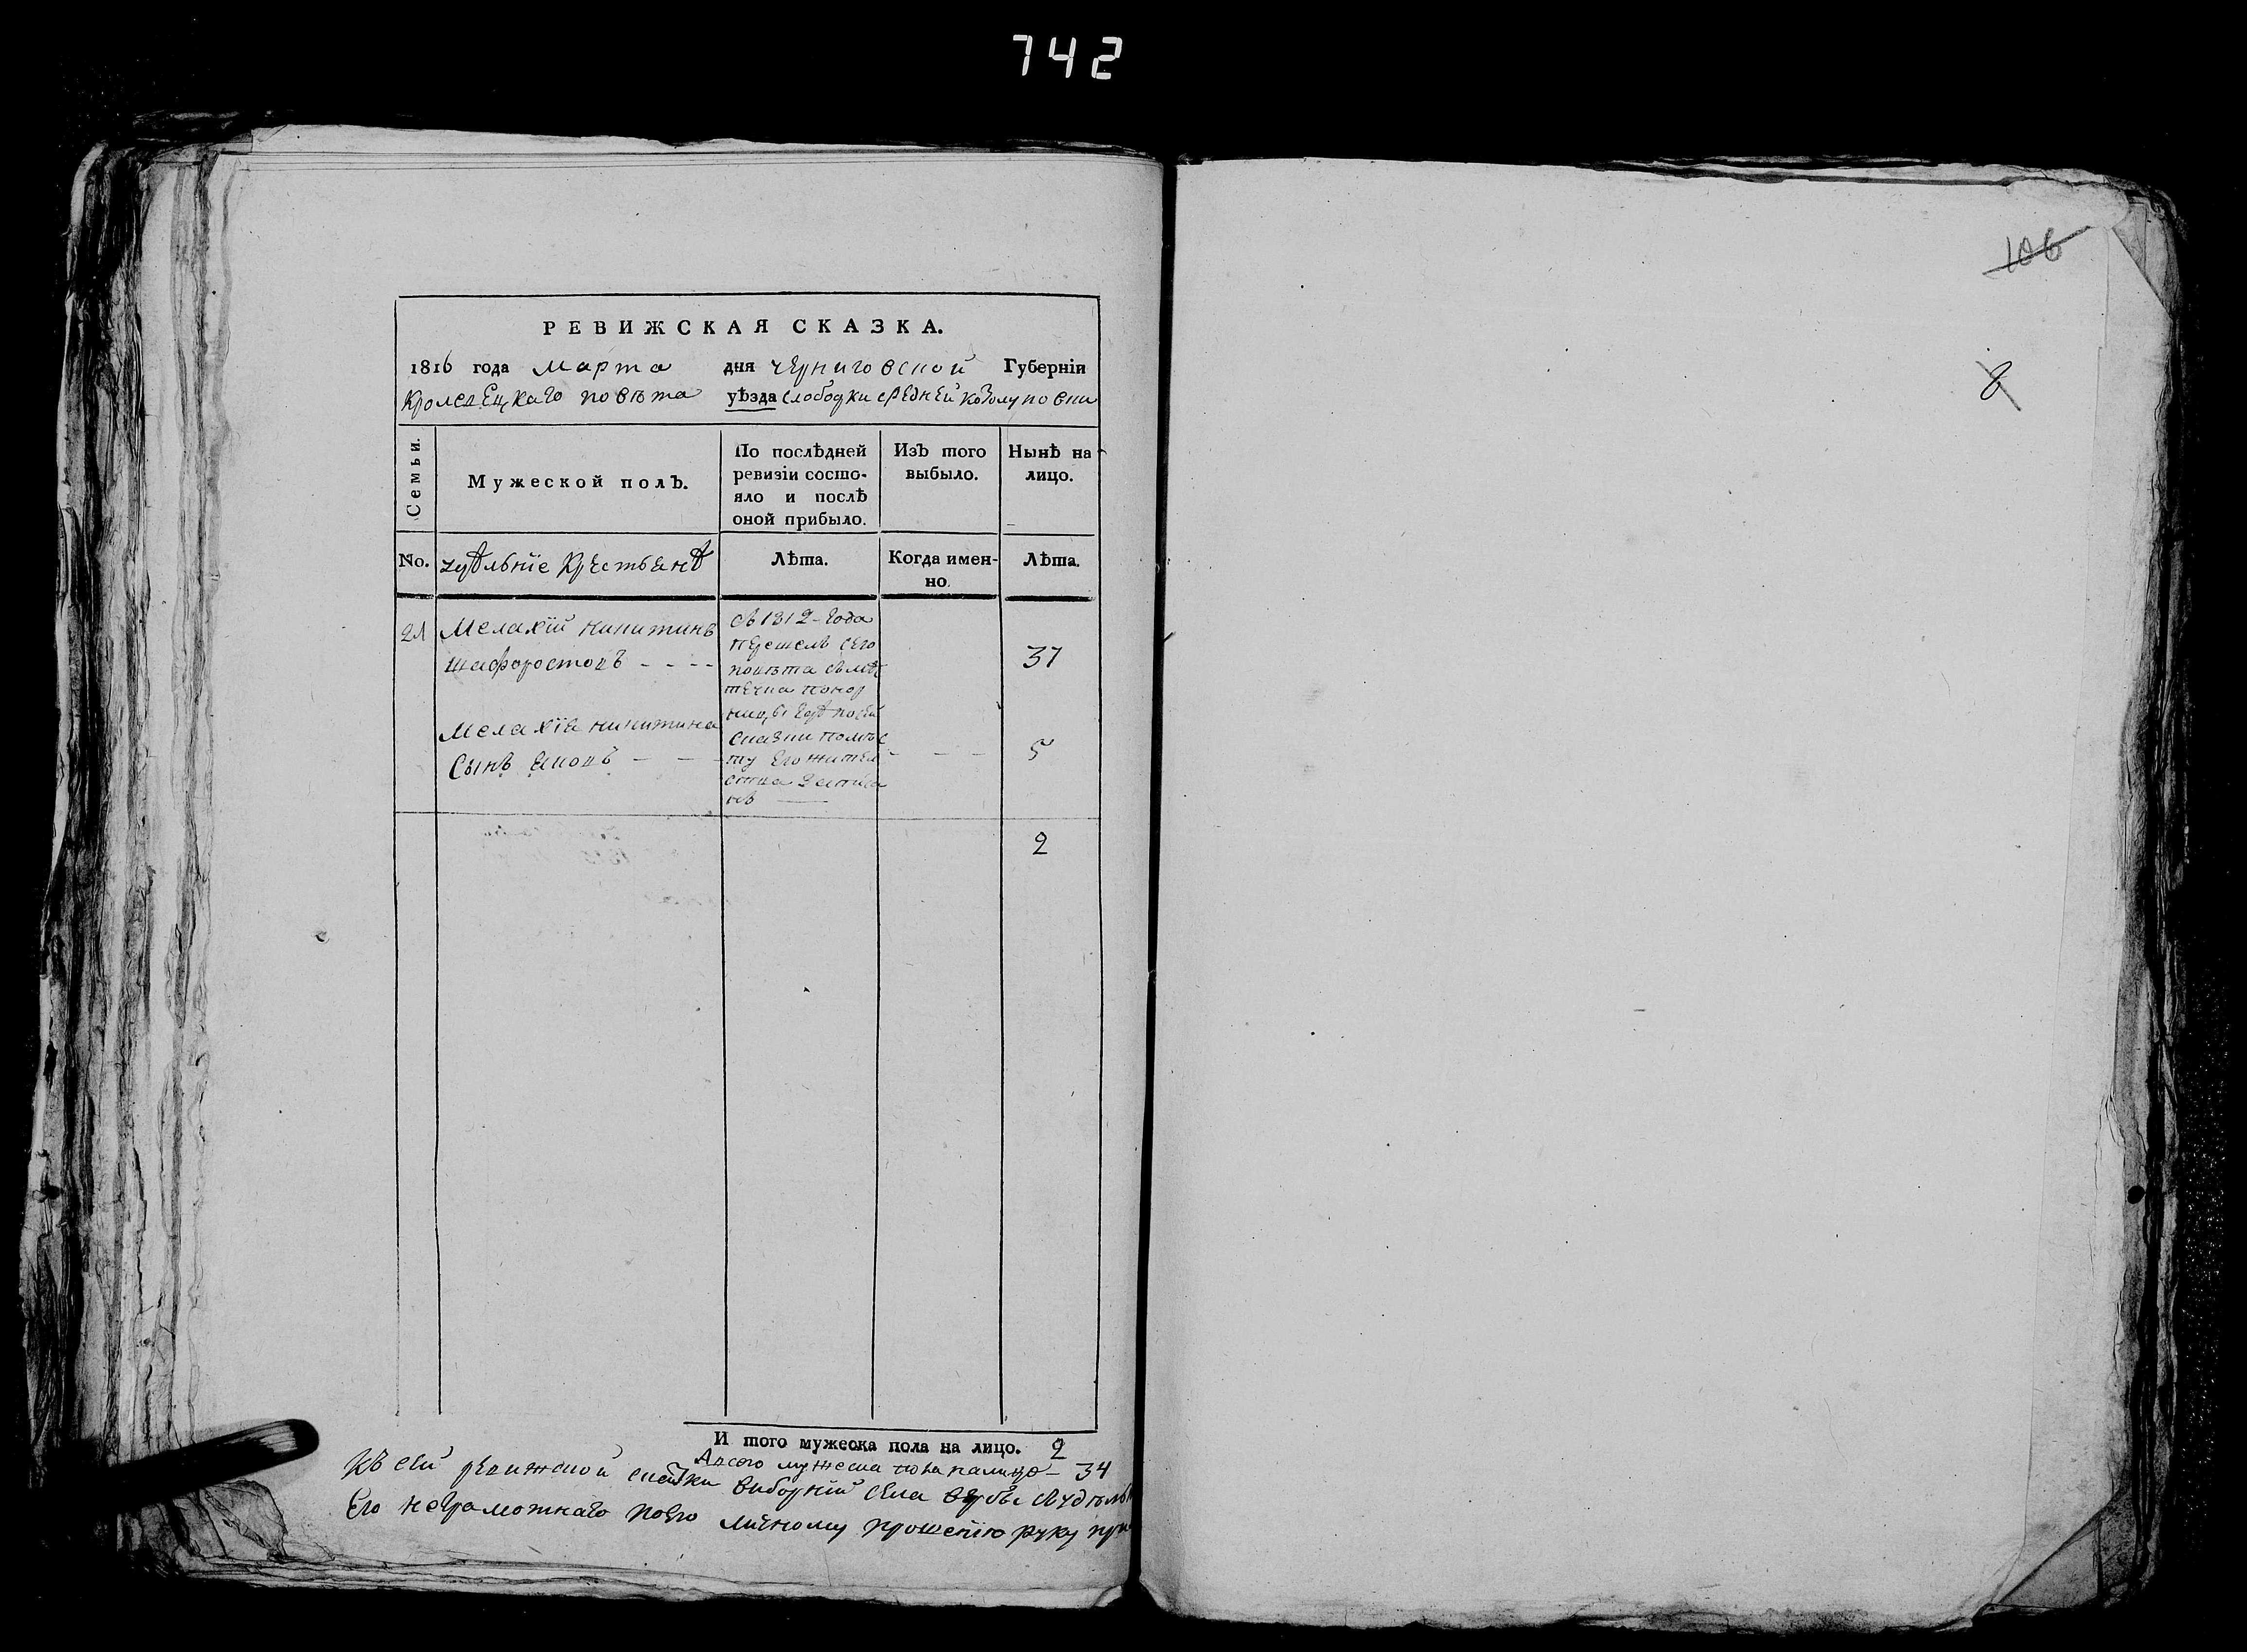 742
106
8
РЕВИЖСКАЯ СКАЗКА.
1816 года Марта дня черниговской Губерніи
Кролевецкаго повѣта уѣзда слободки средней
Семьи.
Мужеской полъ.
По послѣдней
ревизіи состо-
яло и послѣ
оной прибыло.
Изъ того
выбыло.
Нынѣ на
лицо.
No.
удѣльніе Крестьянѣ
Лѣта.
Когда имен-
но.
Лѣта.
21
Мелахій никитинъ
шафоростовъ - - - -
съ 1812 - года
перешелъ сего
повѣта съмѣ
течка понор
ницы гдѣ посей
сказки помѣс
ту его жител
ства
нъ
37
Мелахіа никитина
Сынъ яковъ - - -
5
2
И того мужеска пола на лицо. 2
Авсего мужеска пола налицо - 34
Къ сей ревижской скаски виборній села вербы
Его неграмотнаго поего личному прошенію руку